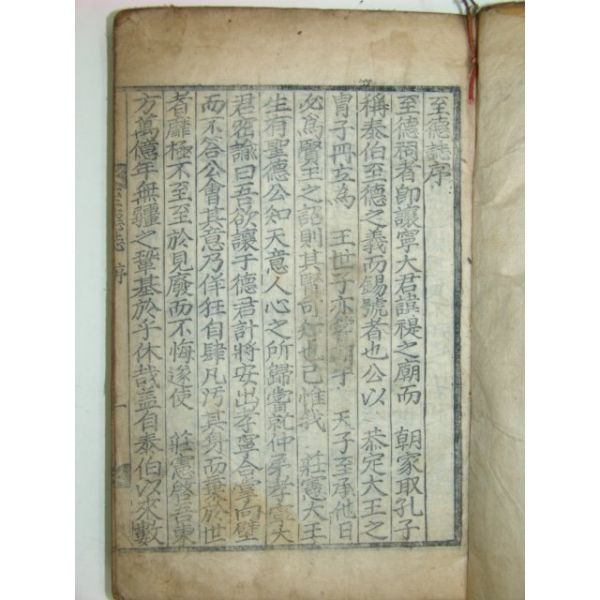 至德誌序
至德祠者即讓寧大君諱禔之廟而 朝家取孔子
稱泰伯至德之義而錫號者也公以 恭定大王之
胄子冊立爲 王世子亦 于 天子至承他日
必爲賢王之詔則其賢可知也已惟我 莊憲大王
生有聖德公知天意人心之所歸嘗就仲弟孝寧大
君密諭曰吾欲讓于德君計將安出孝寧合掌向壁
而不答公會其意乃佯狂自肆凡汚其身而棄於世
者靡極不至至於見廢而不悔遂使 莊憲啓吾東
方萬億年無疆之鞏基於乎休哉盖自泰伯以來數
至德誌 序 一